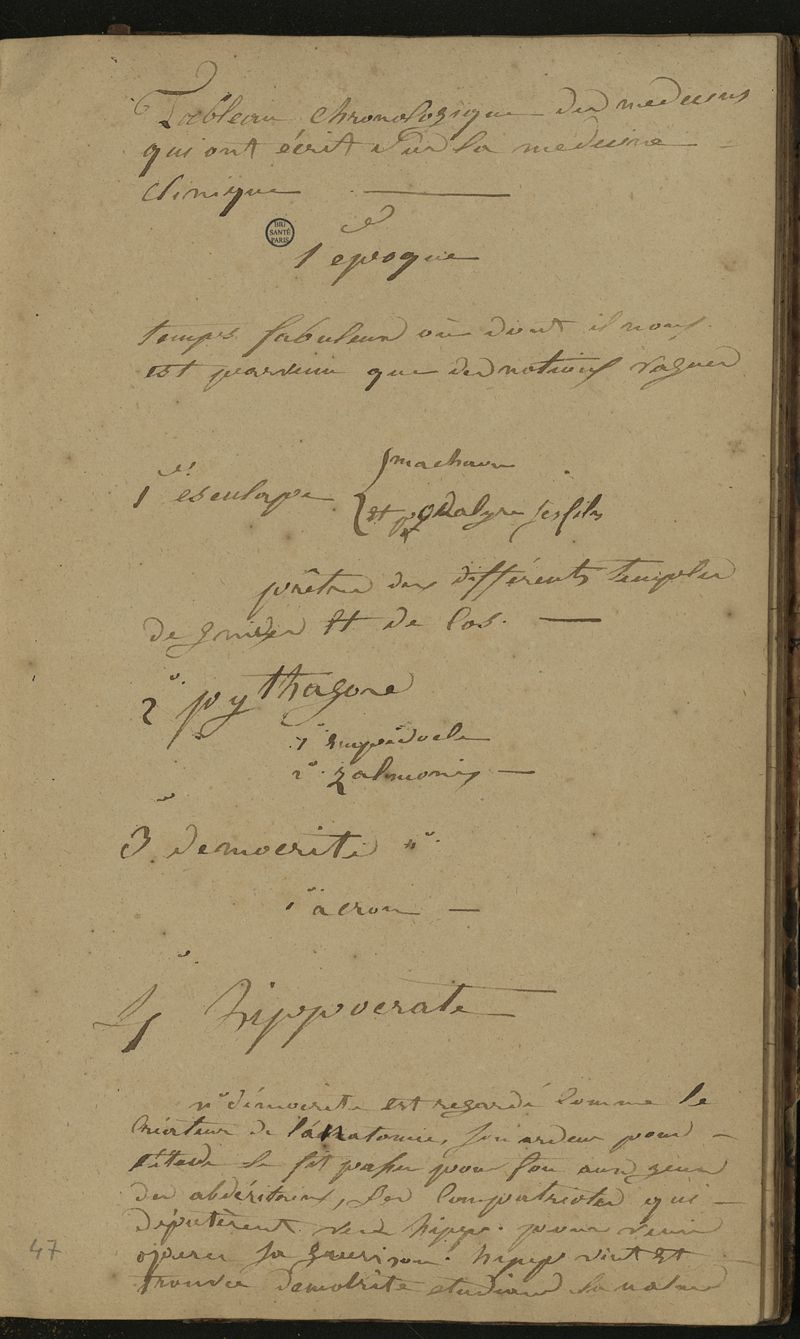 Tableau chronologique des medecins
qui ont écrit sur la medecine
clinique
BIU
SANTÉ
PARIS
1e époque
temps fabuleux ou dont il nous
est parvenu que des notions vagues
1° esculape { machaon
et podalyre ses fils
prêtres des différents temples
de gnides et de Cos.
2° pythagore
1° Empédocle
2° Zalmoxis
3° democrite n°.
1° acron
4° hippocrate
n° démocrite est regardé comme le
Créateur de l'anatomie, son ardeur pour
l'étude le fit passer pour fou aux yeux
des abdéritains, ses compatriotes qui
députèrent vers hipp. pour venir
opérer sa guerison. hipp vint et
trouva democrite etudiant la nature
47